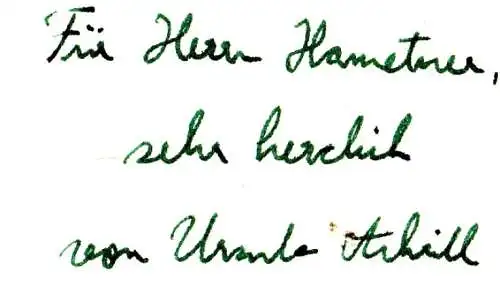 Für Herrn Hametner,
sehr herzlich
von Ursula